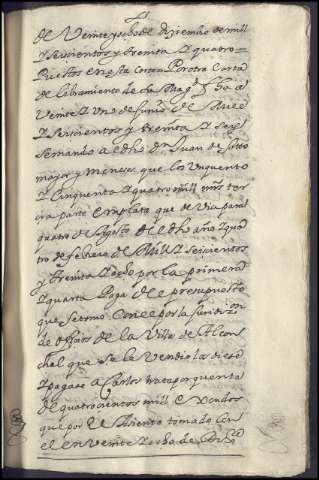 de Veinte y ocho de diziembre de mill
y seiscientos y treinta y quatro
Puestos en esta Corte Por otra Carta
de libramiento de su Mag.d fha a
Veinte y Uno de Junio de Mill
y seiscientos y treinta y seis
se mando a el dho Dn Juan de
mayor y meneses que los Un quento
y Cinquenta y quatro mill mrs ter
cia parte en plata que devia para
quatro de Agosto del dho año y qua
tro de febrero de Mill y seiscientos
y treinta y ocho por la primera
y quarta Paga de el presupuesto
que se tomo Con el por la
de ofiçios de la Villa de Alcon
chal que se le Vendio las diese
y pagase a Carlos trata por quenta
de quatrocientos mill escudos
que por Un Asiento tomado Con
el en Veinte y ocho de